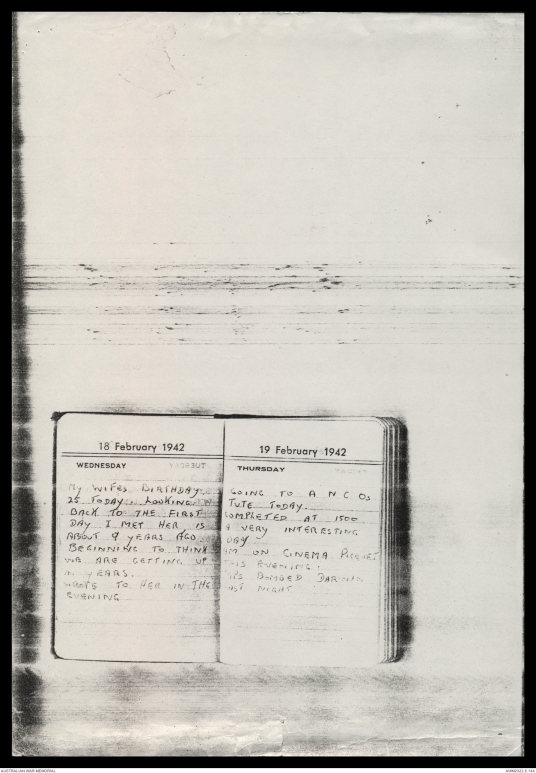 18 February 1942
WEDNESDAY
MY WIFES BIRTHDAY
25 TODAY. LOOKING
BACK TO THE FIRST
DAY I MET HER, IS
ABOUT 9 YEARS AGO
BEGINNING TO THINK
WE ARE GETTING UP
IN YEARS.
WROTE TO HER IN THE
EVENING
19 February 1942
THURSDAY
GOING TO A N C Os
TUTE TODAY.
COMPLETED AT 1500
A VERY INTERESTING
DAY
AM ON CINEMA PICQUET
THIS EVENING.
BOMBED DARWIN
NIGHT
AUSTRALIAN WAR MEMORIAL